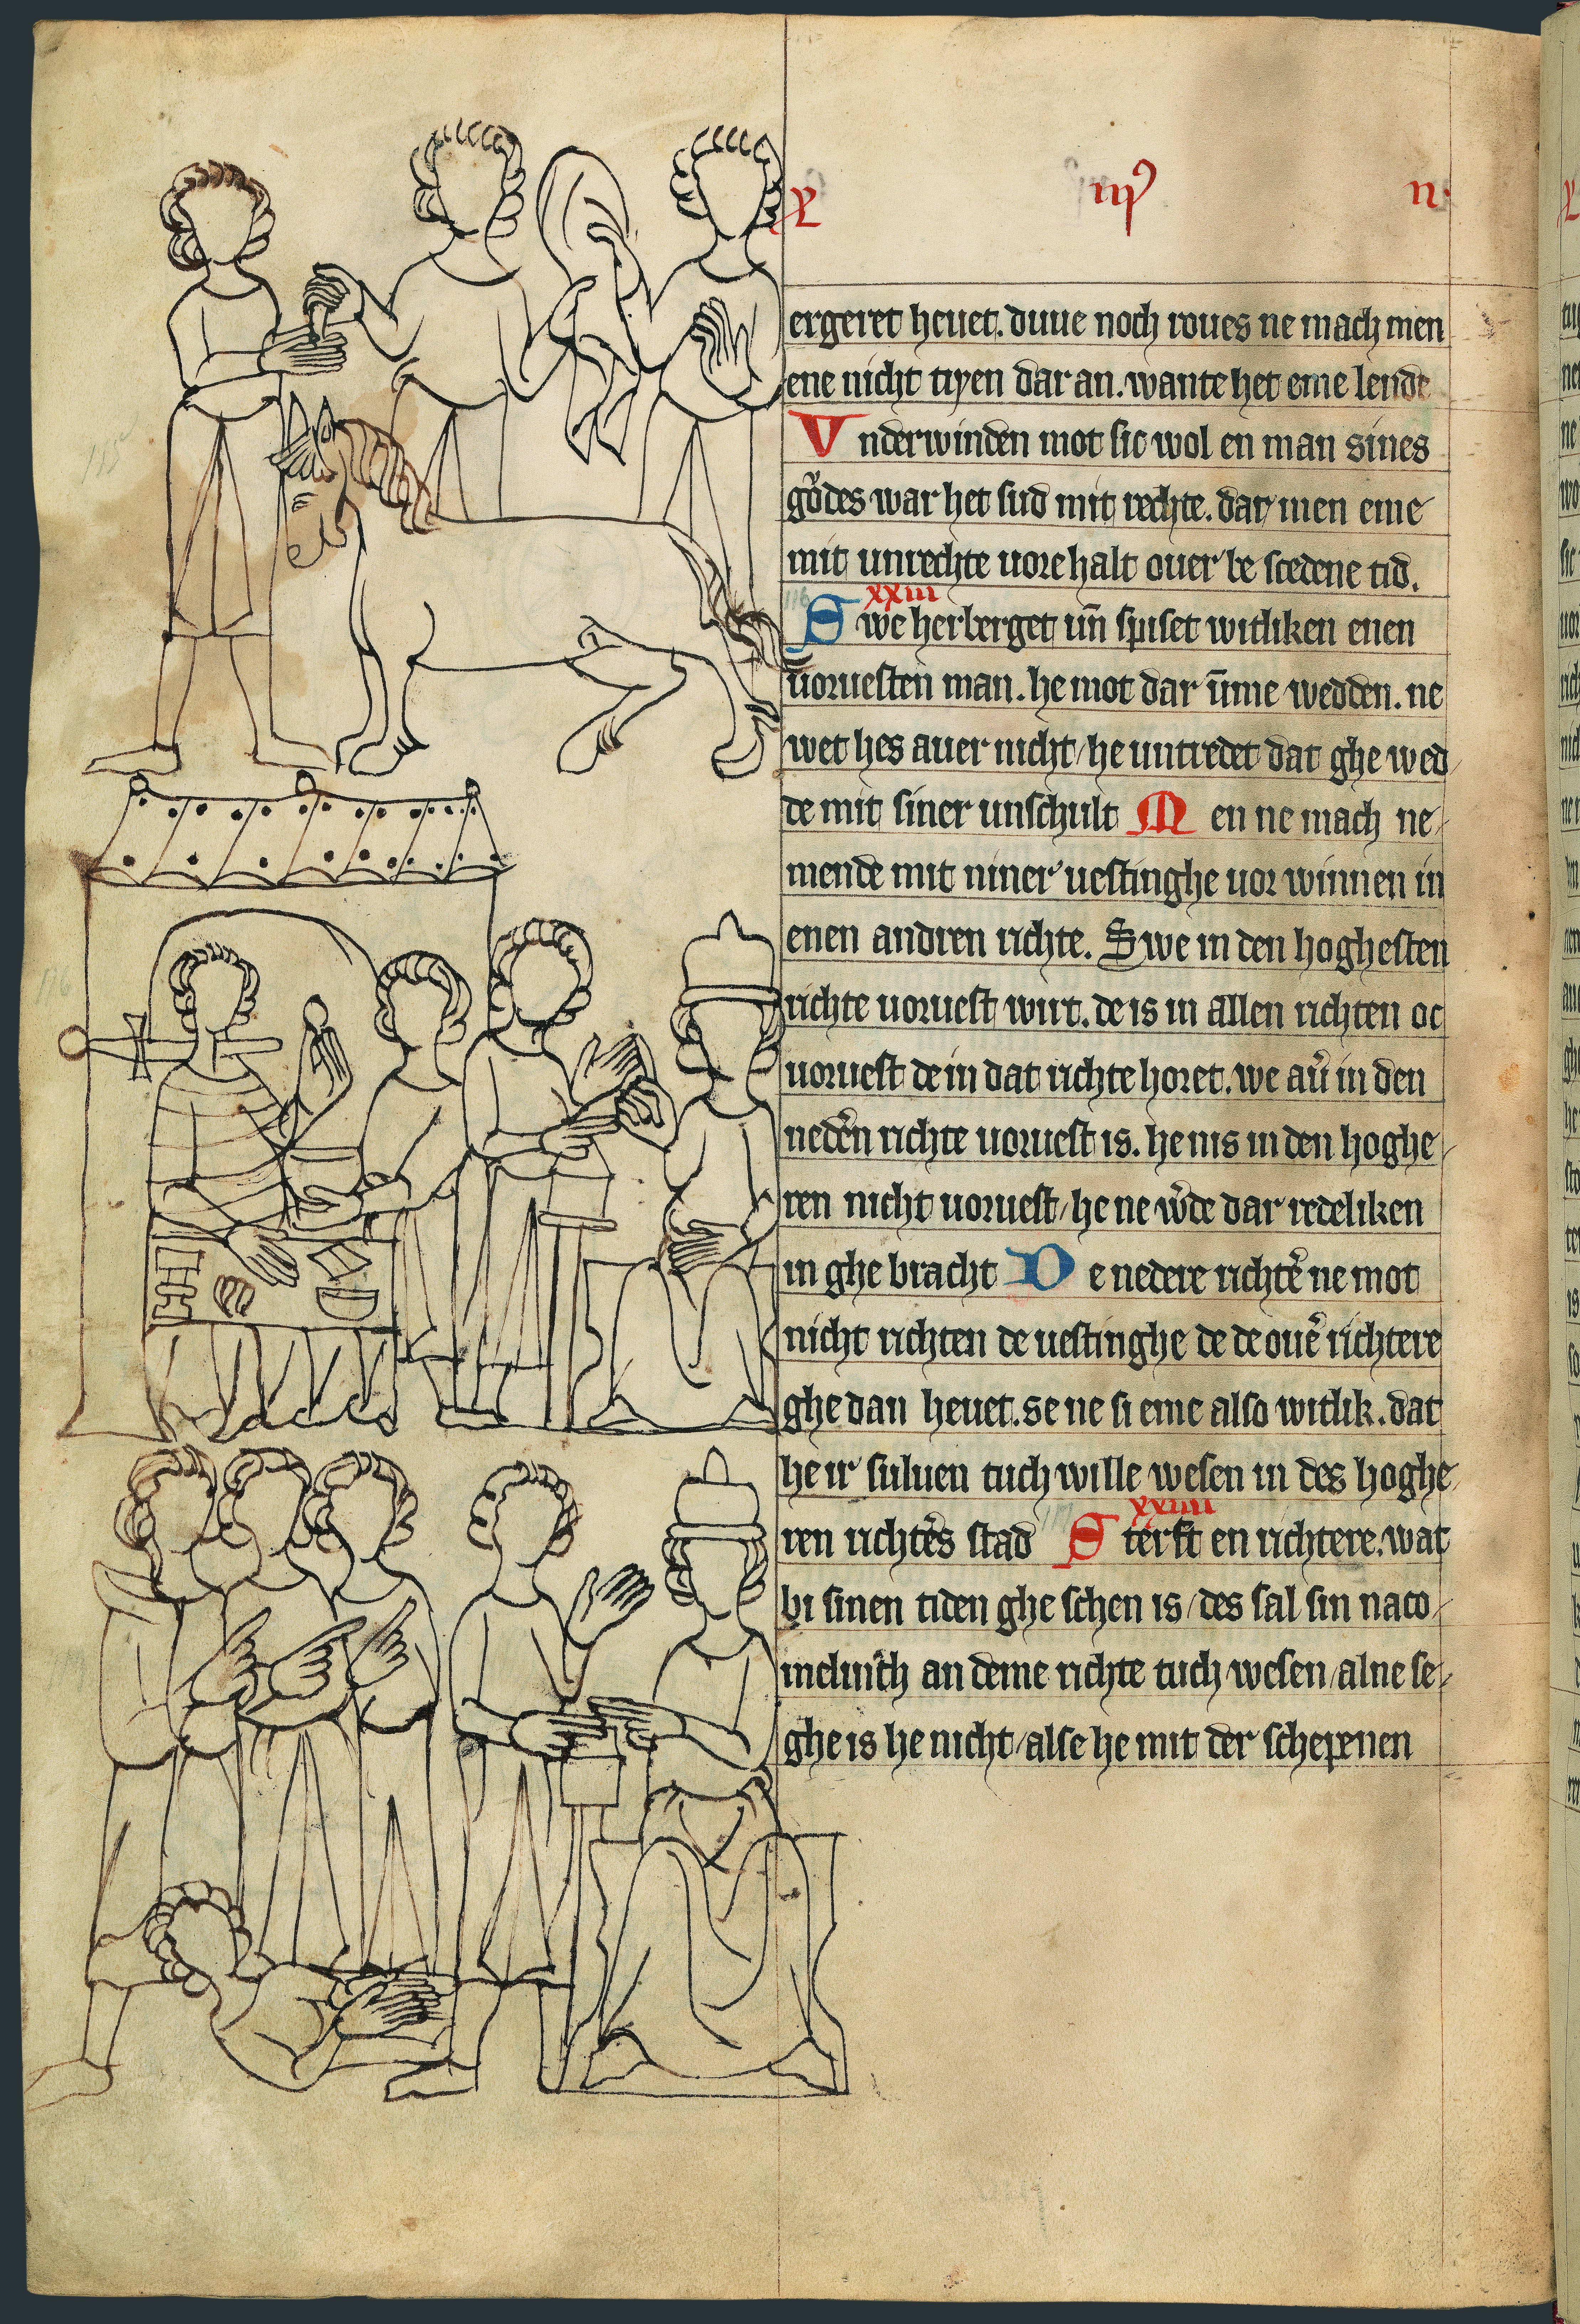 ergeret heuet. duue noch roues ne mach men
ene nicht tiyen dar an. wante het eme lende
Vnderwinden mot sic wol en man sines
gůdes war het sud mit rechte. dat men eme
mit unrechte uore halt ouer be scedene tid.
xxiii
Swe herberget un̄ spiset witliken enen
uoruesten man. he mot dar ūme wedden. ne
wet hes auer nicht / he untredet dat ghe wed
de mit siner unschult Men ne mach ne
mende mit niner uestinghe uor winnen in
enen andren richte. Swe in den hoghesten
richte uoruest wirt. de is in allen richten oc
uoruest de in dat richte horet. we au̓ in den
neder̄n richte uoruest is. he nis in den hoghe
ren nicht uoruest / he ne w̓de dar redeliken
in ghe bracht De nedere richte̓ ne mot
nicht richten de uestinghe de de oue̓ richtere
ghe dan heuet. se ne si eme also witlik. dat
he ir suluen tuch wille wesen in des hoghe
ren richte̓s stad
xxiiii
Sterft en richtere. wat
bi sinen tiden ghe schen is / des sal sin naco
an deme richte tuch wesen / alne se
ghe is he nicht / alse he mit der schepenen